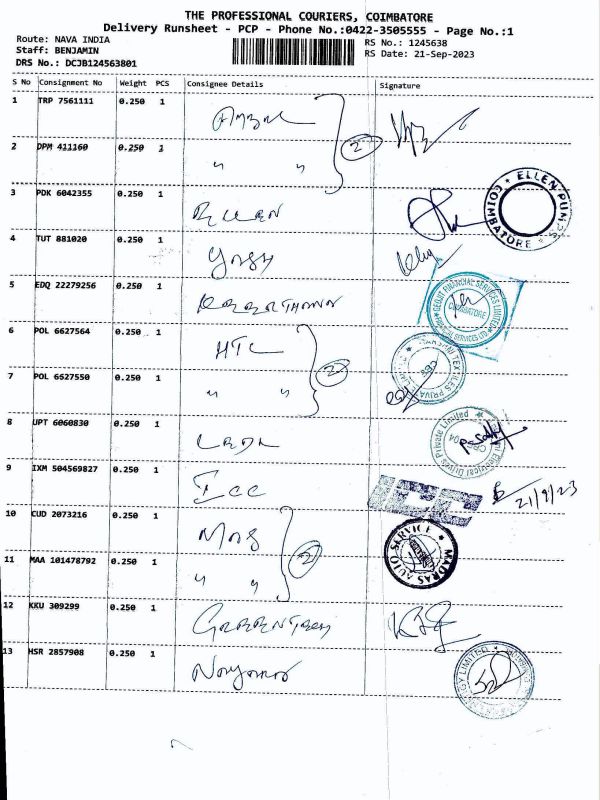 THE PROFESSIONAL COURIERS, COIMBATORE
Delivery Runsheet - PCP - Phone No.:0422-3505555 - Page No.:1
Route: NAVA INDIA
RS No.: 1245638
Staff: BENJAMIN
RS Date: 21-Sep-2023
DRS No.: DCJB124563801
S No Consignment No Weight PCS Consignee Details Signature
1 TRP 7561111 0.250 1
2 DPM 411160 0.250 1 " " 2
3 PDK 6042355 0.250 1
ELLEN
COIMBATORE
4 TUT 881020 0.250 1 Yash
5 EDQ 22279256 0.250 1
FINANCIAL SERVICES LIMITED
COIMBATORE
6 POL 6627564 0.250 1 HTC
7 POL 6627550 0.250 1 " " 2
8 UPT 6060830 0.250 1
Electrical Drives Private Limited
9 IXM 504569827 0.250 1 ICC
21/9/23
10 CUD 2073216 0.250 1 MAS
11 MAA 101478792 0.250 1 " " 2
MADRAS AUTO SERVICE
12 KKU 309299 0.250 1 Greentech
13 HSR 2857908 0.250 1
ENERGY LIMITED